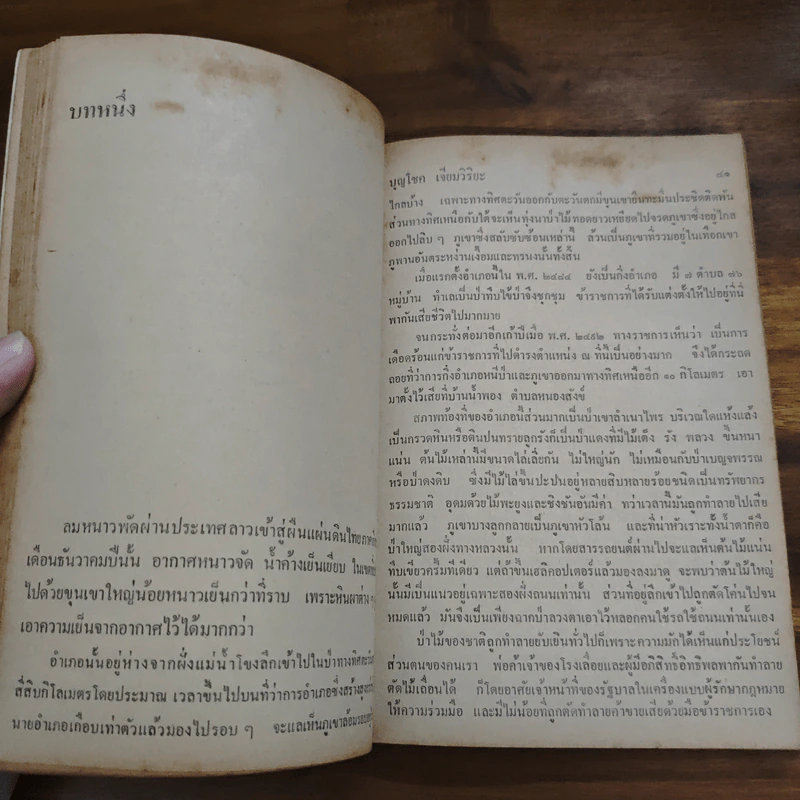 บทหนึ่ง
ลมหนาวพัดผ่านประเทศลาวเข้าสู่ผืนแผ่นดินไทย
เดือนธันวาคมปีนั้น อากาศหนาวจัด น้ำค้างเย็นเยียบ
ไปด้วยขุนเขาใหญ่น้อยหนาวเย็นกว่าที่ราบ เพราะหินผาต่าง ๆ
เอาความเย็นจากอากาศไว้ได้มากกว่า
อำเภอนั้นอยู่ห่างจากฝั่งแม่น้ำโขงลึกเข้าไปในป่าทางทิศตะวันตก
สี่สิบกิโลเมตรโดยประมาณ เวลาขึ้นไปบนที่ว่าการอำเภอซึ่งสร้างสูง
นายอำเภอเกือบเท่าตัวแล้วมองไปรอบ ๆ จะแลเห็นภูเขาล้อมรอบ
บุญโชค เจียมวิริยะ ๔๑
ใกลบ้าง เฉพาะทางทิศตะวันออกกับตะวันตกมีขุนเขายืนทะมึนประชิดติดพัน
ส่วนทางทิศเหนือกับใต้จะเห็นทุ่งนาป่าไม้ทอดยาวเหยียดไปจรดภูเขาซึ่งอยู่ไกล
ออกไปลิบ ๆ ภูเขาซึ่งสลับซับซ้อนเหล่านี้ ล้วนเป็นภูเขาที่รวมอยู่ในเทือกเขา
ภูพานอันตระหง่านเงื้อมและทรนงนั้นทั้งสิ้น
เมื่อแรกตั้งอำเภอนี้ใน พ.ศ. ๒๔๘๔ ยังเป็นกิ่งอำเภอ มี ๗ ตำบล ๗๖
หมู่บ้าน ทำเลเป็นป่าทึบไข้ป่าจึงชุกชุม ข้าราชการที่ได้รับแต่งตั้งให้ไปอยู่ที่นี่
พากันเสียชีวิตไปมากมาย
จนกระทั่งต่อมาอีกเก้าปีเมื่อ พ.ศ. ๒๔๙๒ ทางราชการเห็นว่า เป็นการ
เดือดร้อนแก่ข้าราชการที่ไปดำรงตำแหน่ง ณ ที่นี้เป็นอย่างมาก จึงได้กระถด
ถอยที่ว่าการกิ่งอำเภอหนีป่าและภูเขาออกมาทางทิศเหนืออีก ๑๐ กิโลเมตร เอา
มาตั้งไว้เสียที่บ้านน้ำพอง ตำบลหนองสังข์
สภาพท้องที่ของอำเภอนี้ส่วนมากเป็นป่าเขาลำเนาไพร บริเวณใดแห้งแล้ง
เป็นกรวดหินหรือดินปนทรายลูกรังก็เป็นป่าแดงที่มีไม้เต็ง รัง พลวง ขึ้นหนา
แน่น ต้นไม้เหล่านี้มีขนาดไล่เลี่ยกัน ไม่ใหญ่นัก ไม่เหมือนกับป่าเบญจพรรณ
หรือป่าดงดิบ ซึ่งมีไม้ไล่ขึ้นปะปนอยู่หลายสิบหลายร้อยชนิดเป็นทรัพยากร
ธรรมชาติ อุดมด้วยไม้พะยูงและชิงชันอันมีค่า ทว่าเวลานี้มันถูกทำลายไปเสีย
มากแล้ว ภูเขาบางลูกกลายเป็นภูเขาหัวโล้น และที่น่าหัวเราะทั้งน้ำตาก็คือ
ป่าใหญ่สองฝั่งทางหลวงนั้น หากโดยสารรถยนต์ผ่านไปจะแลเห็นต้นไม้แน่น
ทึบเขียวครึ้มทีเดียว แต่ถ้าขึ้นเฮลิคอปเตอร์แล้วมองลงมาดู จะพบว่าต้นไม้ใหญ่
นั้นมีเป็นแนวอยู่เฉพาะสองฝั่งถนนเท่านั้น ส่วนที่อยู่ลึกเข้าไปถูกตัดโค่นไปจน
หมดแล้ว มันจึงเป็นเพียงฉากป่าลวงตาเอาไว้หลอกคนใช้รถใช้ถนนเท่านั้นเอง
ป่าไม้ของชาติถูกทำลายยับเยินทั่วไปก็เพราะความมักได้เห็นแก่ประโยชน์
ส่วนตนของคนเรา พ่อค้าเจ้าของโรงเลื่อยและผู้มีอภิสิทธิ์อิทธิพลพากันทำลาย
ตัดไม้เถื่อนได้ ก็โดยอาศัยเจ้าหน้าที่ของรัฐบาลในเครื่องแบบผู้รักษากฎหมาย
ให้ความร่วมมือ และมีไม่น้อยที่ถูกตัดทำลายค้าขายเสียด้วยมือข้าราชการเอง